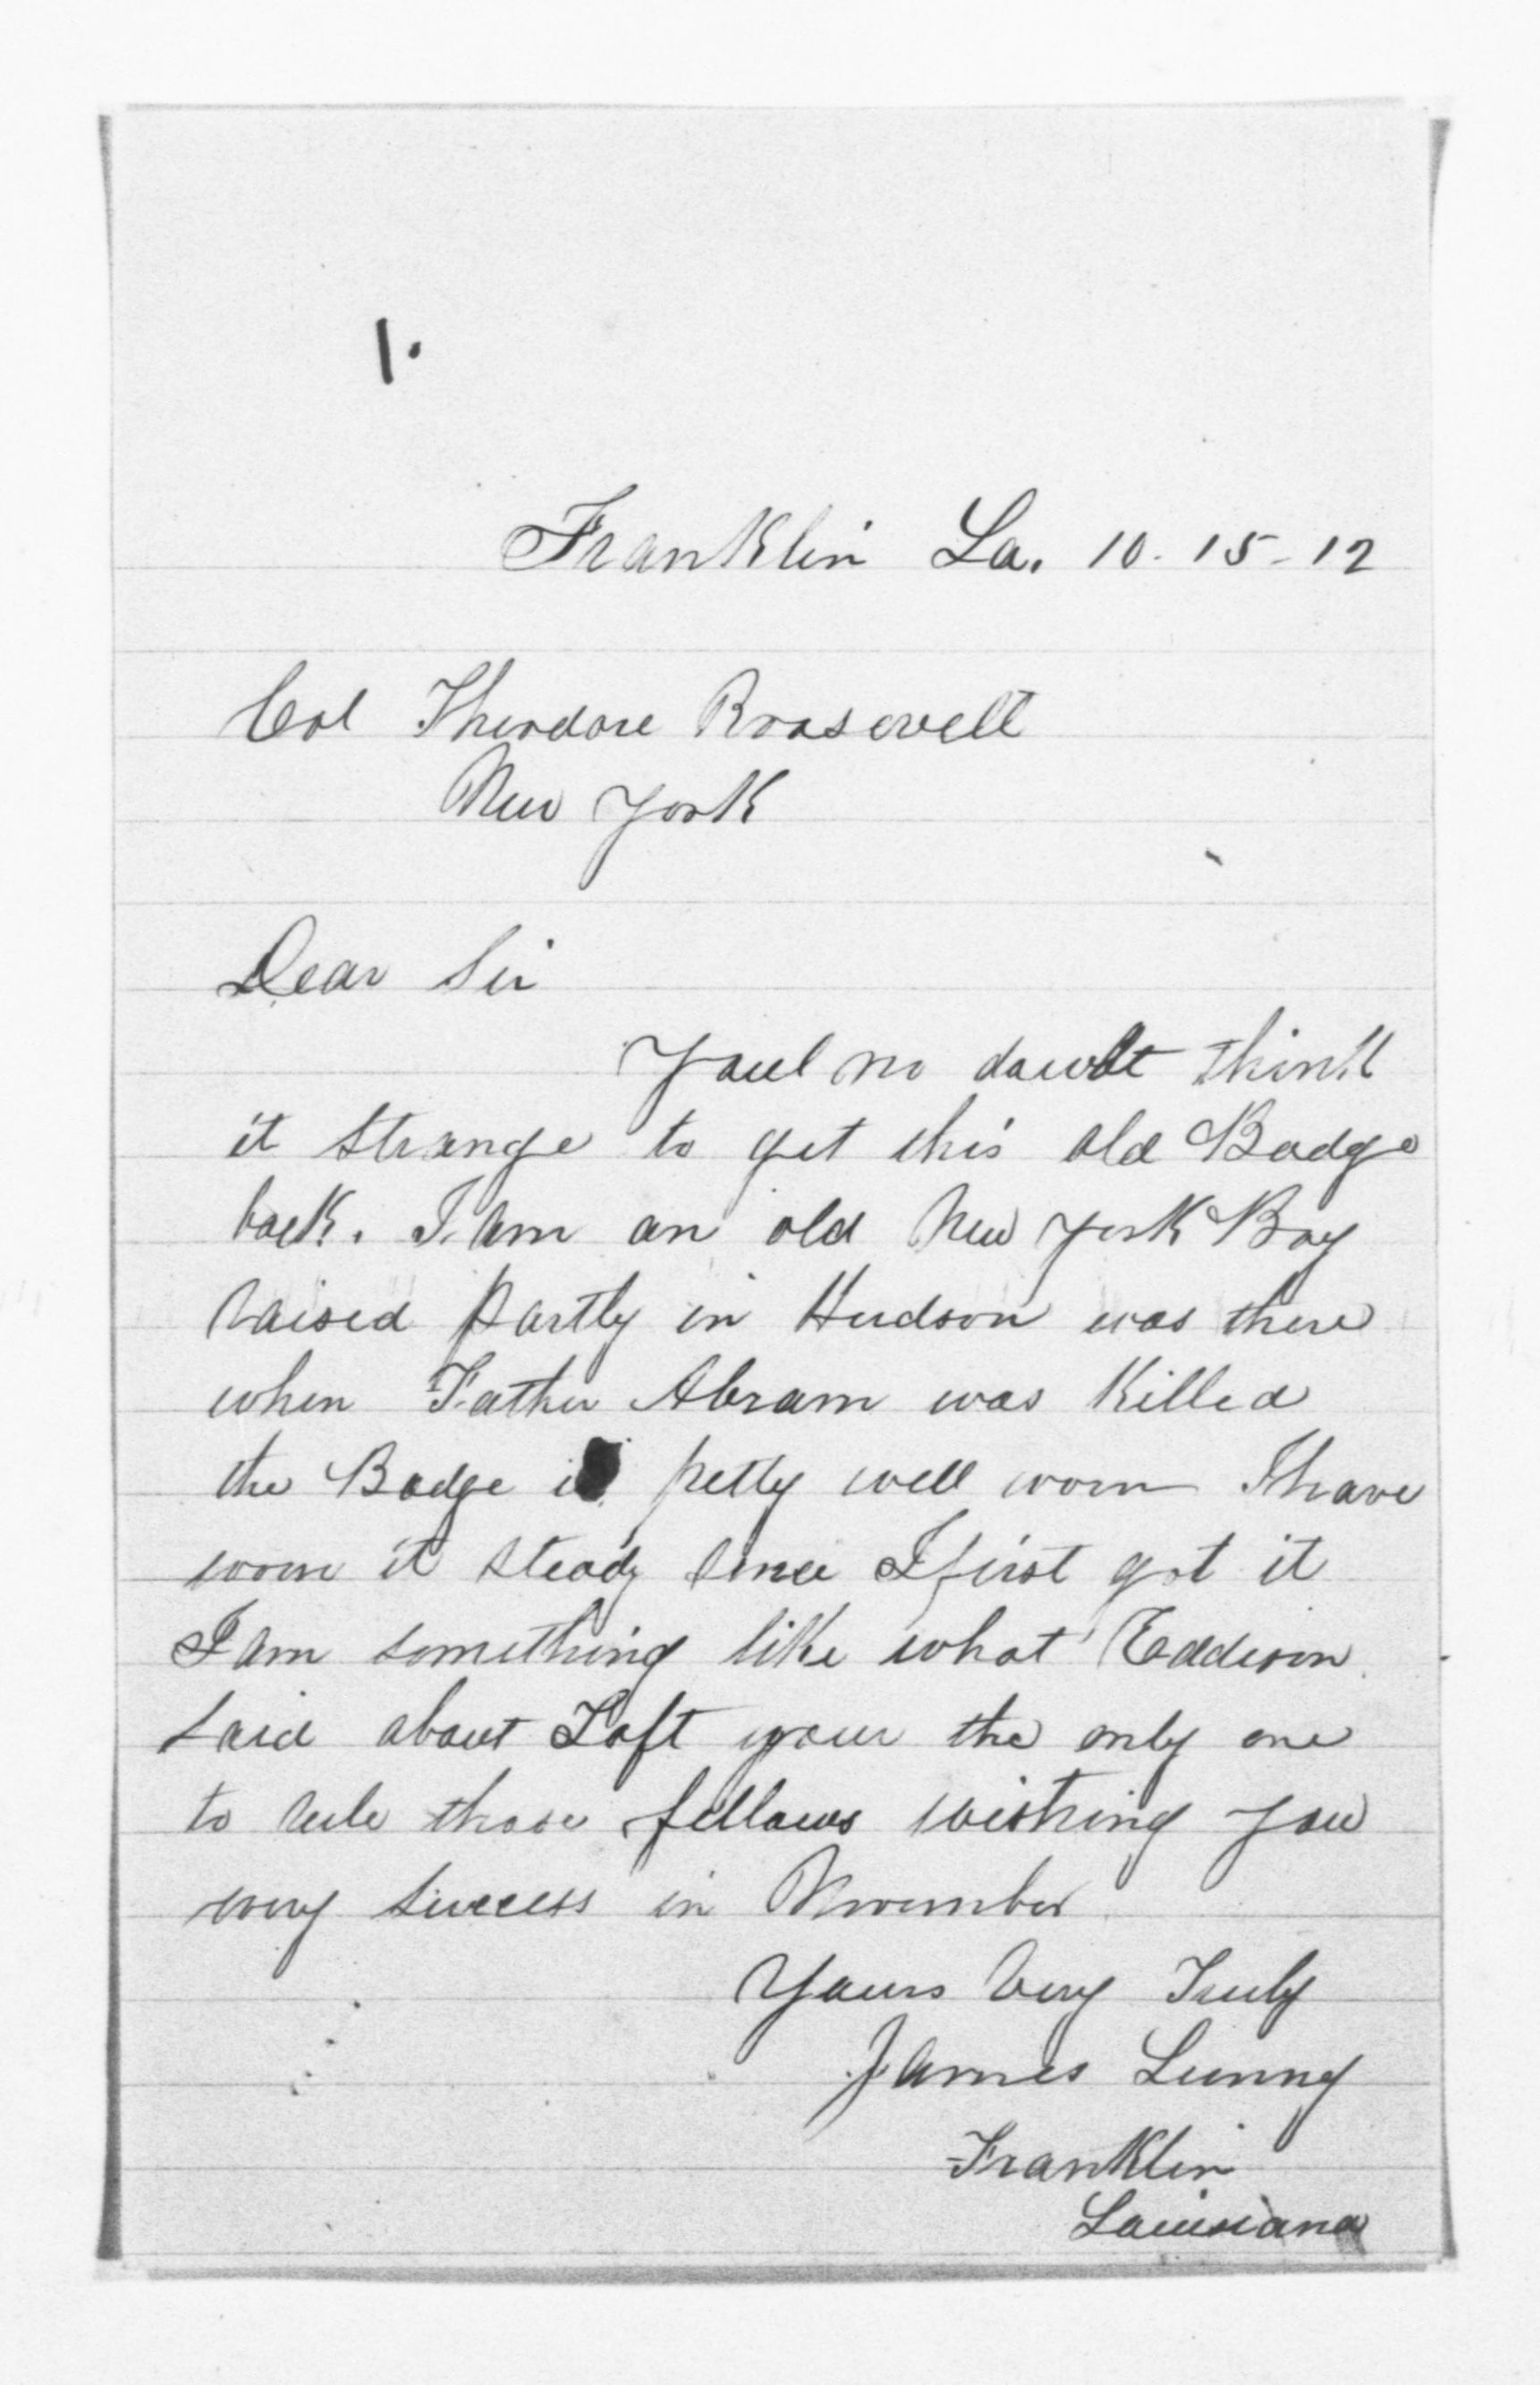 1.
Franklin La. 10-15-12
Col Theodore Roosevelt
New York
Dear Sir
Youl no dawbt think
it strange to get this old Badge
back. I am an old New York Boy
raised partly in Hudson was there
when Father Abram was killed
the Badge is petty well worn I have
worn it steady since I first got it
I am something like what Eddison
said about Taft your the only one
to rule those fellows wishing you
every success in November
Yours Very Truly
James Lunny
Franklin
Louisiana